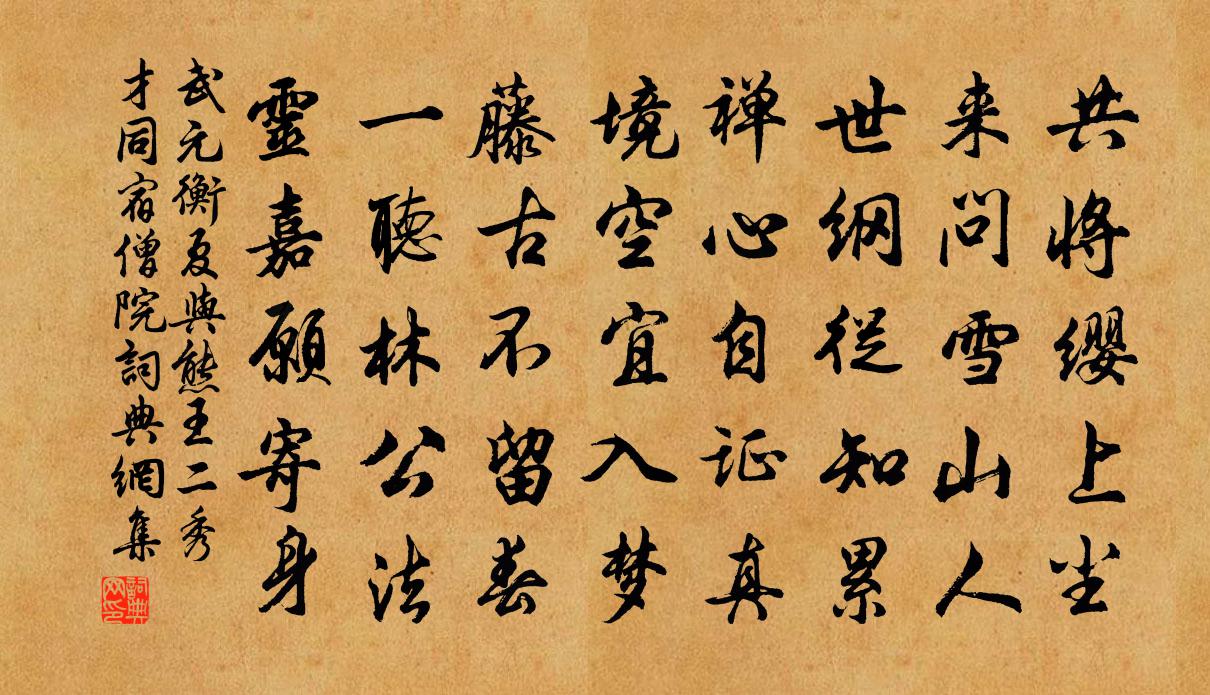 共将缨上尘
来问雪山人
世纲从知累
禅心自证真
境空宜入梦
藤古不留春
一聽林公法
靈嘉願寄身
武元衡夏與熊王二秀
才同宿僧院詞典網集
詞典网印